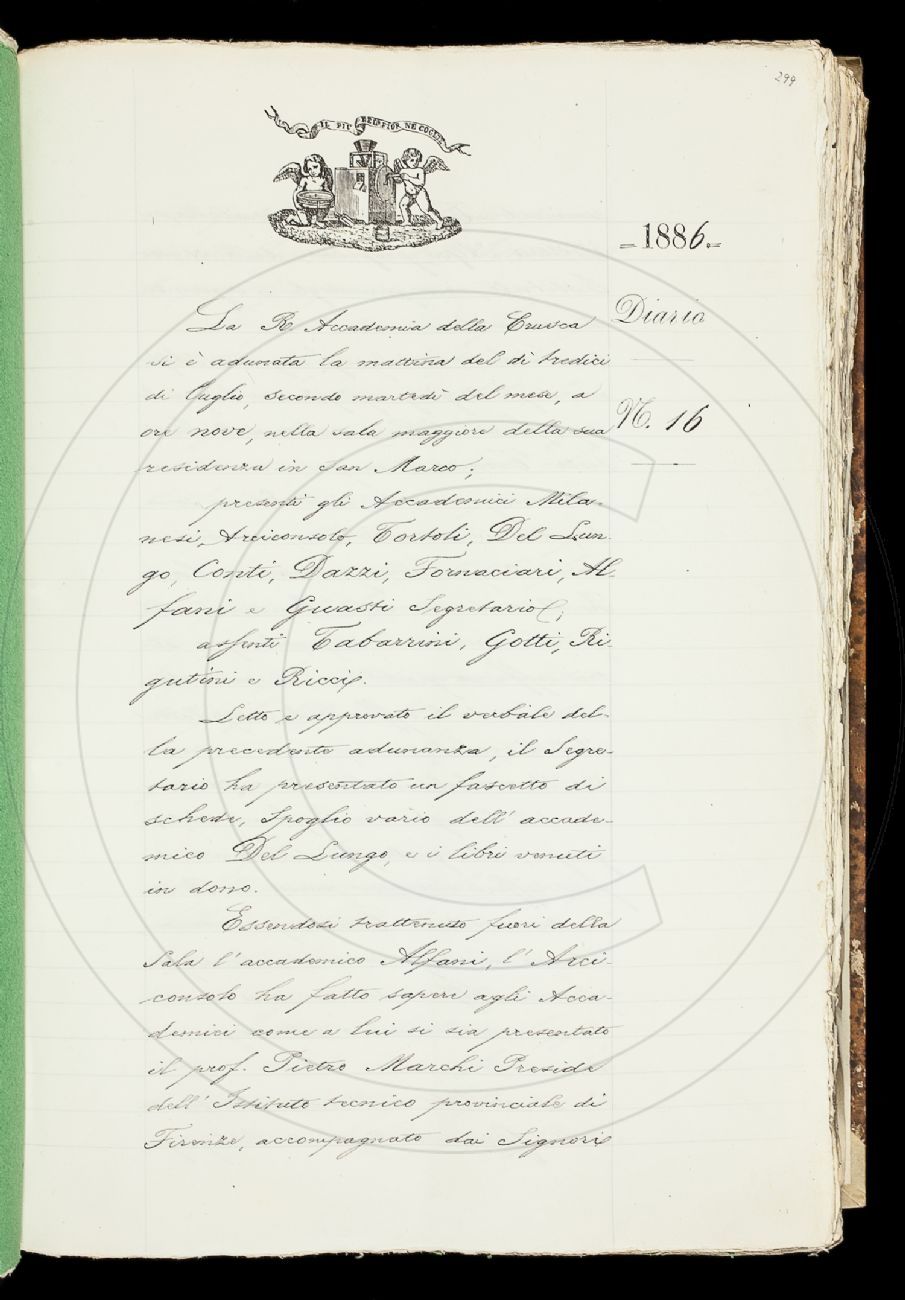 299
IL PIÙ BEL FIOR NE COGLIE
= 1886. =
Diario
N. 16
La R. Accademia della Crusca
si è adunata la mattina del dì tredici
di luglio, secondo martedì del mese, a
ore nove, nella sala maggiore della sua
residenza in San Marco;
presenti gli Accademici Mila-
nesi, Arciconsolo, Tortoli, Del Lun-
go, Conti, Dazzi, Fornaciari, Al-
fani e Guasti Segretario;
assenti Tabarrini, Gotti, Ri-
gutini e Ricci.
Letto e approvato il verbale del-
la precedente adunanza, il Segre-
tario ha presentato un fascetto di
schede, Spoglio vario dell' accade-
mico Del Lungo, e i libri venuti
in dono.
Essendosi trattenuto fuori della
Sala l'accademico Alfani, l'Arci-
consolo ha fatto sapere agli Acca-
demici come a lui si sia presentato
il prof. Pietro Marchi Preside
dell' Istituto tecnico provinciale di
Firenze, accompagnato dai Signori